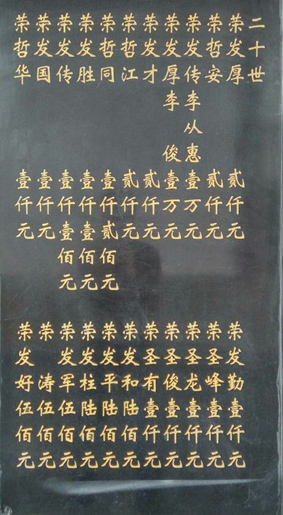 二十世
荣发厚 贰仟元
荣哲安 贰仟元
荣发传 李从惠 壹万元
荣发厚 李俊 壹万元
荣发才 贰仟元
荣哲江 贰仟元
荣哲同 壹仟贰佰元
荣发胜 壹仟壹佰元
荣发传 壹仟壹佰元
荣发国 壹仟元
荣哲华 壹仟元
荣发勤壹仟元
荣圣峰壹仟元
荣圣龙壹仟元
荣圣俊壹仟元
荣圣有壹仟元
荣发和陆佰元
荣发平陆佰元
荣发柱陆佰元
荣发军伍佰元
荣涛伍佰元
荣发好伍佰元